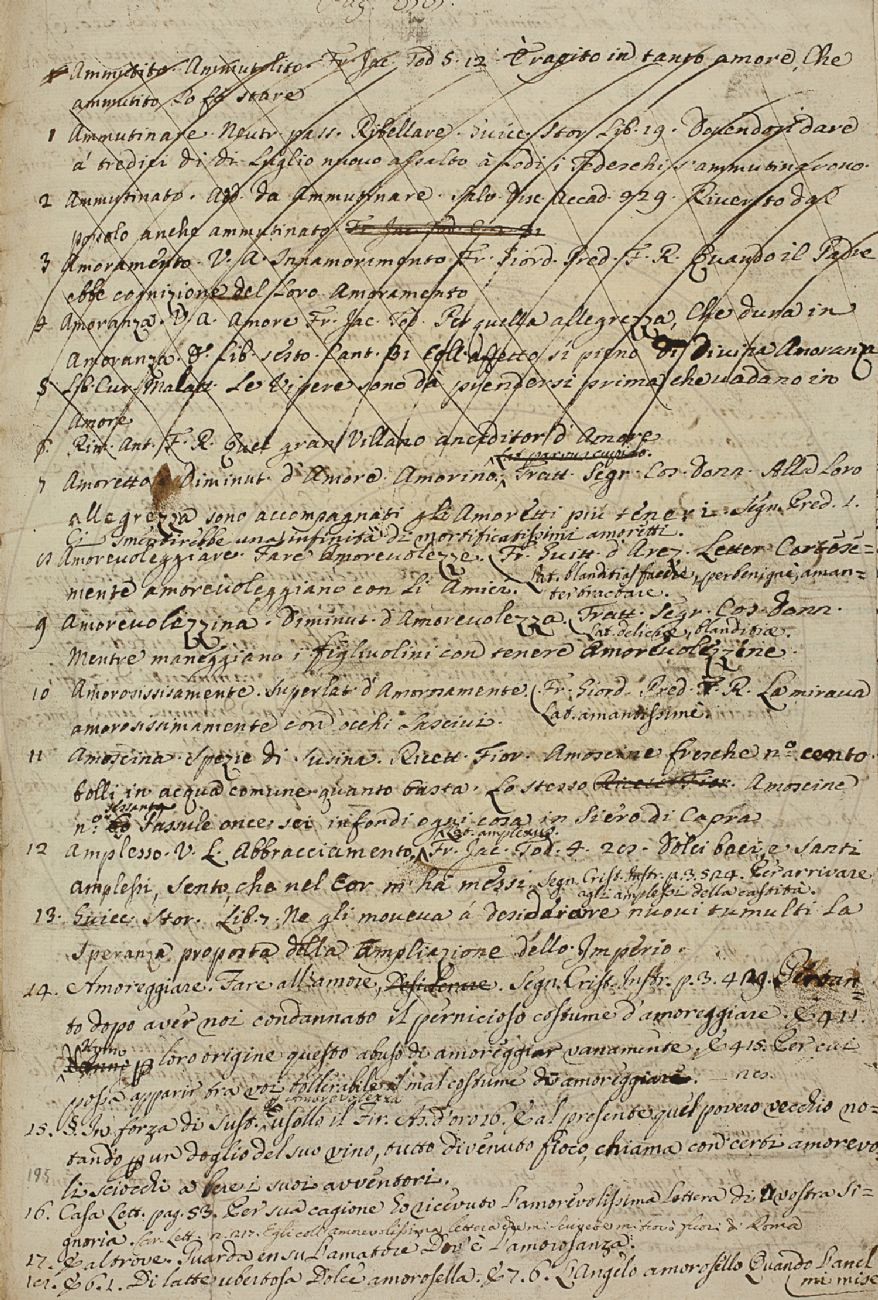 Ammutito. Ammutolito. Fr. Jac. Tod. 5. 12. Tragito in tanto amore, Che
ammutito Lo fa stare
1 Ammutinare. Neutr. pass. Ribellare. Guicc. Stor. Lib. 19. Dovendosi dare
á tredici di di Luglio nuovo assalto à Lodi, i Tedeschi s'ammutinarono.
2 Ammutinato. Add. da Ammutinare. Salv. Disc. Accad. 929. Riverito dal
popolo anche ammutinato.
3 Amoramento. V. A. Innamoramento. Fr. Giord. Pred. F. R. Quando il Padre
ebbe cognizione del Loro Amoramento
4 Amoranza. V. A. Amore. Fr. Jac. Tod. Per quella allegrezza, Che dura in
Amoranza. Lib. sesto. Cant. 31 Coll'affetto sì pieno di Divina Amoranza
5 Lib. Cur. Malatt. Le Vipere sono da prendersi prima che vadano in
Amore
6. Rim. Ant. F. R. Quel gran Villano anceditor d'Amore
Lat. parvus cupido.
7 Amoretto. Diminut. d'Amore. Amorino. Tratt. Segr. Cos. Donn. Alla Loro
allegrezza sono accompagnati gli Amoretti più teneri. Segn. Pred. 1.
Ci smentirebbe una infinità di mortificatissimi amoretti.
8 Amorevoleggiare. Fare Amorevolezze. Fr. Guitt. d'Arez. Letter. Cortese=
mente amorevoleggiano con Li Amici. Lat. blanditias facere, perbenigne, aman=
ter tractare.
9 Amorevolezzina. Diminut. d'Amorevolezza. Tratt. Segr. Cos. Donn.
Lat. deliciæ, blanditiæ.
Mentre maneggiano i figliuolini con tenere Amorevolezzine.
10 Amorosissimamente. Superlat. d'Amorosamente. Fr. Giord. Pred. F. R. La mirava
amorosissimamente con occhi Lascivi. Lat. amantissime.
11 Amoscina. Spezie di Susina. Ricett. Fior. Amoscine fresche n.º cento
bolli in acqua comune quanto basta. Lo stesso. Amoscine
sessanta
n.º Passule once sei infondi ogni cosa in Siero di Capra
Lat. amplexus.
12 Amplesso. V. L. Abbracciamento. Fr. Jac. Tod. 4. 28. Dolci baci, e Santi
amplessi, Sento, che nel Cor m'ha messi. Segn. Crist. Instr. p. 3. 5. 24. Per arrivare
agli amplessi della castità.
13. Guicc. Stor. Lib. 7. Ne gli moveva á desiderare nuovi tumulti La
Speranza proposta della Ampliazione dello Imperio.
14. Amoreggiare. Fare all'amore, Desiderare. Segn. Crist. Instr. p. 3. 4. Pertan
to dopo aver noi condannato il pernicioso costume d'amoreggiare. E 4. 11.
Anno
p loro origine questo abuso di amoreggiar vanamente, E 4. 15. Per cui
possa apparir tra voi tollerabile il mal costume di amoreggiare.
d'Amorevolezza
15. §. In forza di Sust. usollo il Fir. As. d'oro 16. E al presente quel povero vecchio no=
tando p un doglio del suo vino, tutto divenuto fioco, chiama con certi amorevo
li sciocchi a bere i suoi avventori.
195
16. Casa Lett. pag. 53. Per sua cagione ho ricevuto L'amorevolissima Lettera di Vostra Si=
gnoria
17. E altrove. Guarda in su L'amatore Dov'è L'amorosanza.
18. E 6. 1. Di latte ubertosa Dolce amorosella. E 7. 6. L'Angelo amorosello Quando L'anel
mi mise